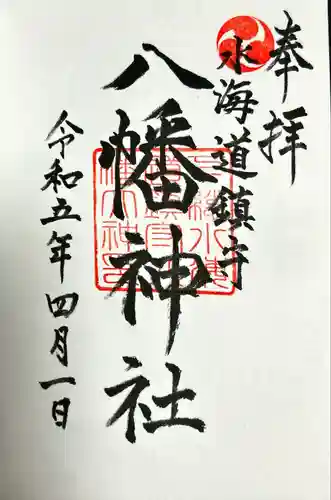 奉拝
水海道鎮守
八幡神社
令和五年四月一日